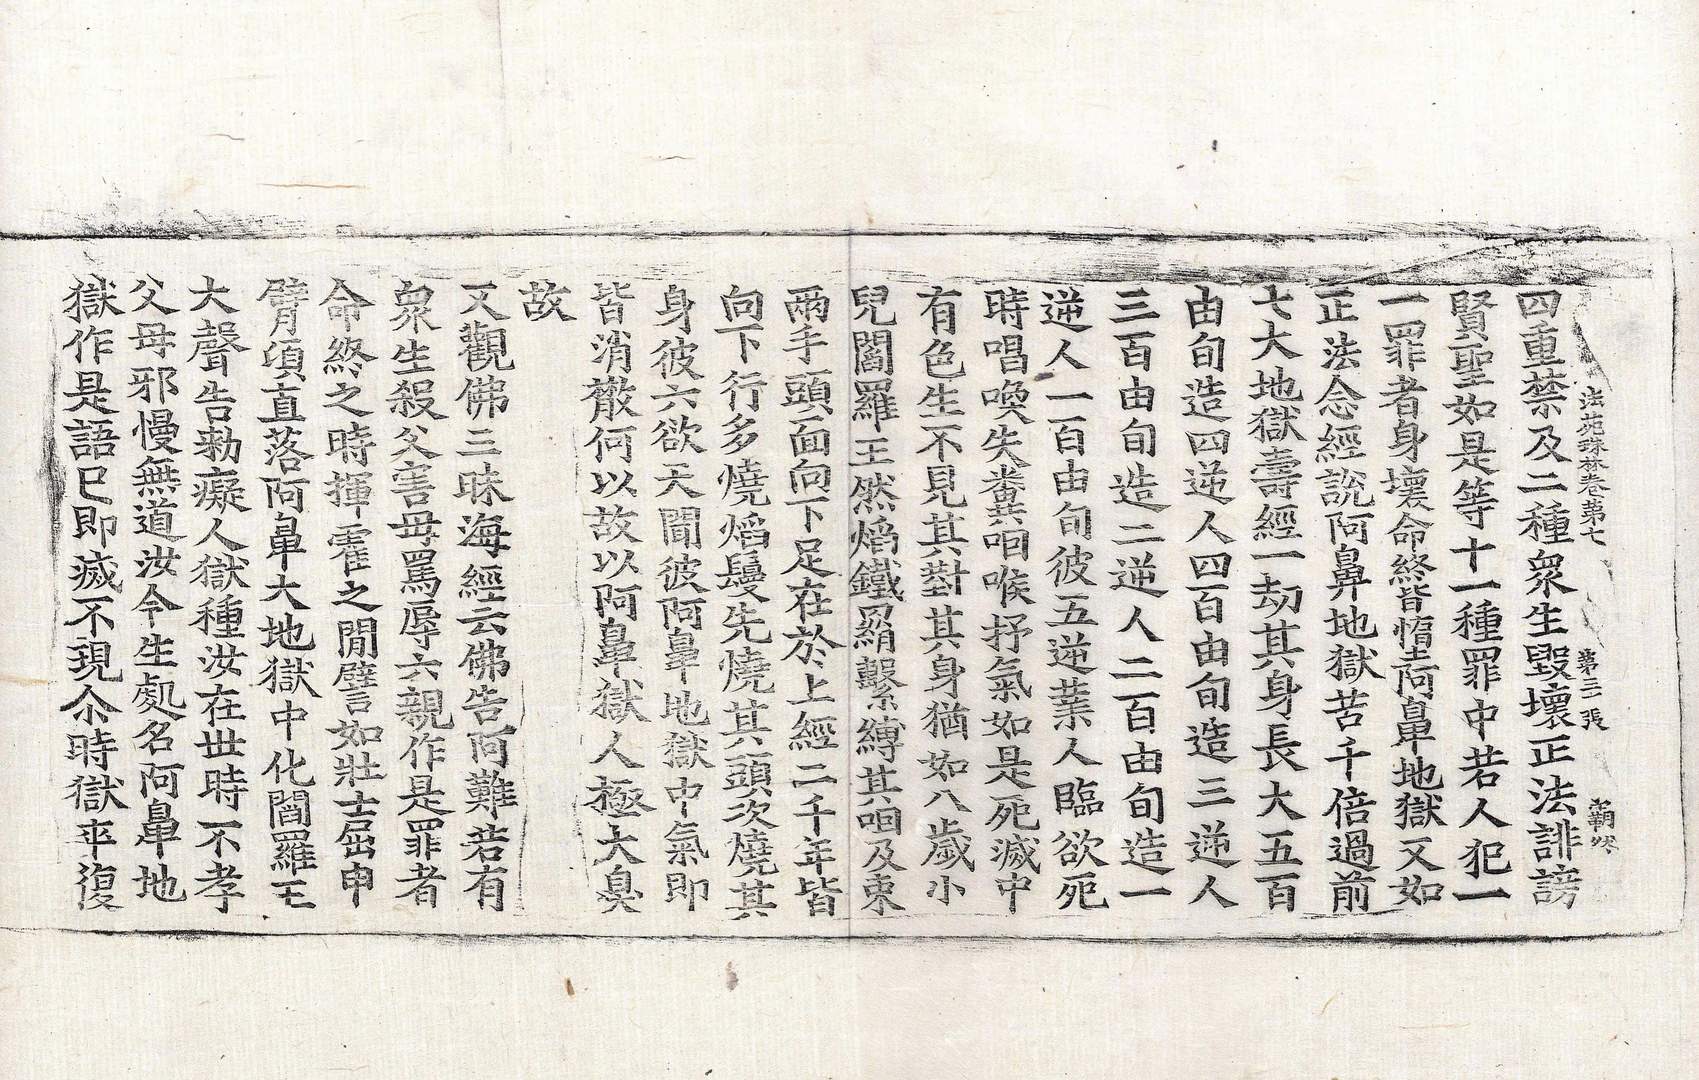 法苑珠林卷第七 第三二張 覇
四重禁及二種衆生毀壞正法誹謗
賢聖如是等十一種罪中若人犯一
一罪者身壞命終皆惰阿鼻地獄又如
正法念經說阿鼻地獄苦千倍過前
七大地獄壽經一劫其身長大五百
由旬造四逆人四百由旬造三逆人
三百由旬造二逆人二百由旬造一
逆人一百由旬彼五逆業人臨欲死
時唱喚失糞咽喉抒氣如是死滅中
有色生不見其對其身猶如八歲小
兒閻羅王然焰鐵羂繫縛其咽及束
兩手頭面向下足在於上經二千年皆
向下行多燒焰鬘先燒其頭次燒其
身彼六欲天聞彼阿鼻地獄中氣即
皆消散何以故以阿鼻獄人極大臭
故
又觀佛三昧海經云佛告阿難若有
衆生殺父害母罵辱六親作是罪者
命終之時揮霍之間譬如壯士屈申
臂頃直落阿鼻大地獄中化閻羅王
大聲告勑癡人獄種汝在世時不孝
父母邪慢無道汝今生處名阿鼻地
獄作是語已即滅不現尒時獄卒復